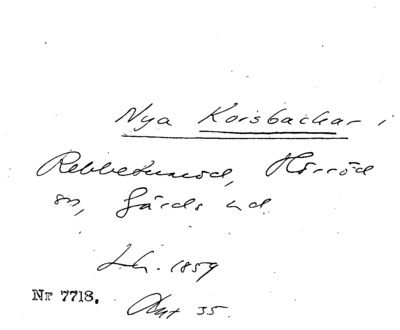 Nya Korsbackar i
Rebbetuaröd, Hörröd
sn, Gärds hd.
S.k. 1859
Nr 7718.
Akt 35.